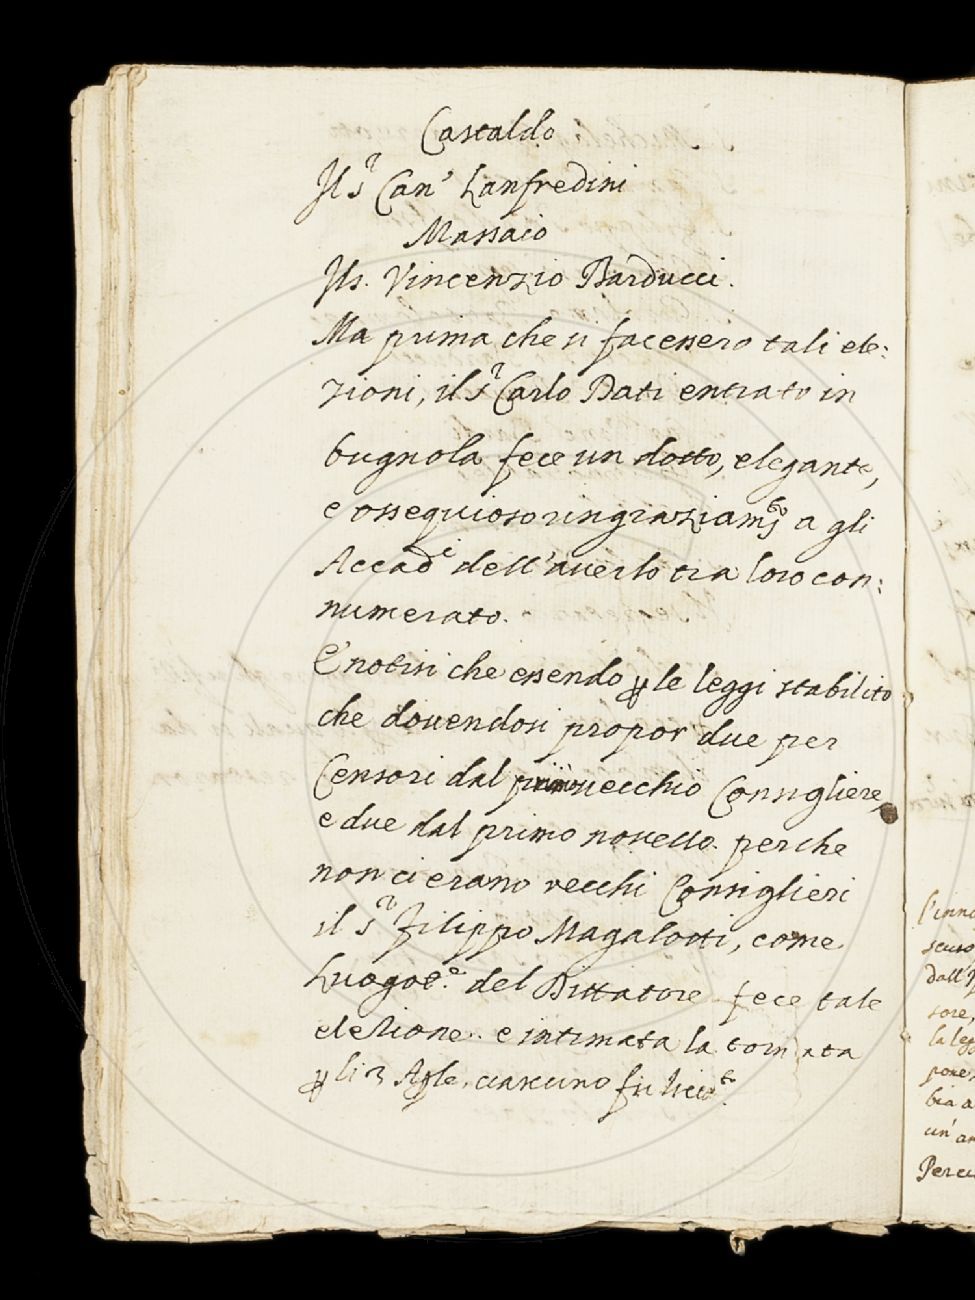 Castaldo
Il Sr Can.' Lanfredini
Massaio
Il s. Vincenzio Barducci.
Ma prima che si facessero tali ele:
zioni, il Sr Carlo Dati entrato in
bugnola fece un dotto, elegante,
e ossequioso ringraziam.to a gli
Accad.ci dell'auerlo tra loro con:
numerato.
E' notisi che essendo ꝑ le leggi stabilito
che douendosi propor due per
Censori dal più vecchio Consigliere,
e due dal primo nouello. perche
non ci erano vecchi Consiglieri
il Sr Filippo Magalotti, come
Luogot.e del Dittatore fece tale
elezione. e intimata la tornata
ꝑ li 3 Aple, ciascuno fu licto.
l'inno
scuso
dall'
sore,
la leg
pone
bia a
un' an
Percu